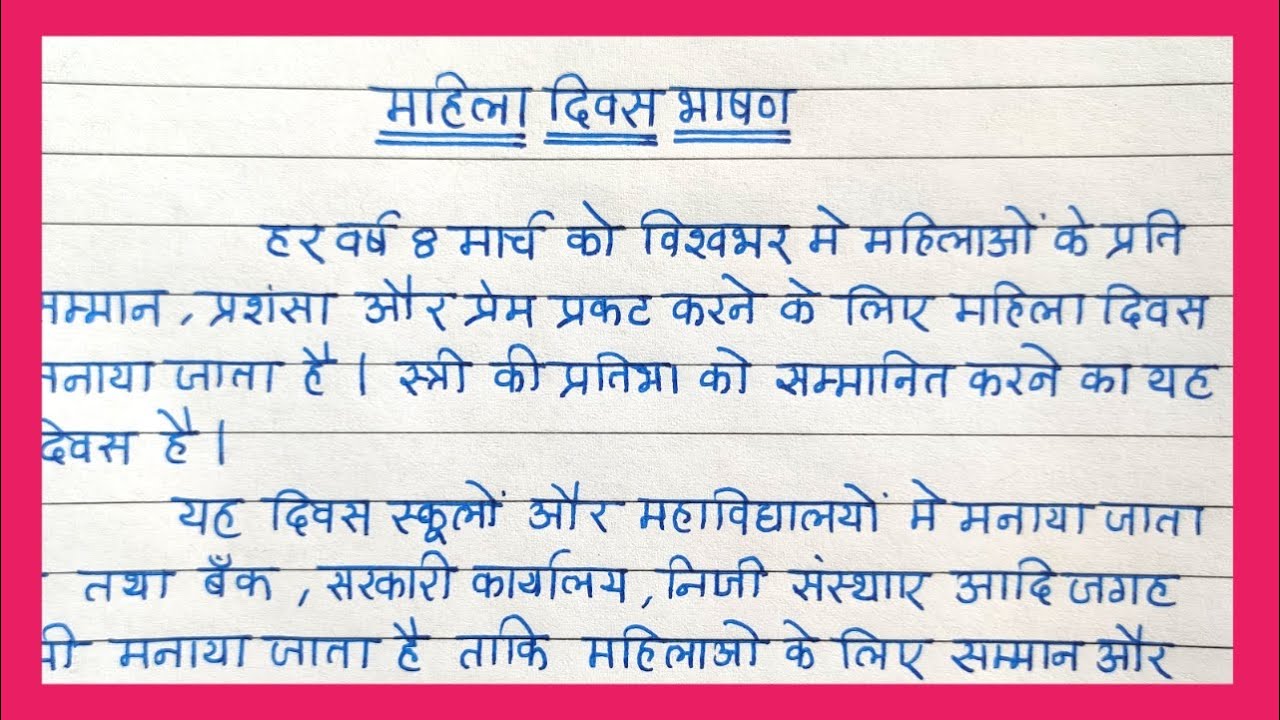 महिला दिवस भाषण
हर वर्ष 8 मार्च को विश्वभर मे महिलाओं के प्रति
सम्मान, प्रशंसा और प्रेम प्रकट करने के लिए महिला दिवस
मनाया जाता है। स्त्री की प्रतिभा को सम्मानित करने का यह
दिवस है।
यह दिवस स्कूलों और महाविद्यालयों मे मनाया जाता
तथा बैंक, सरकारी कार्यालय, निजी संस्थाए आदि जगह
भी मनाया जाता है ताकि महिलाओ के लिए सम्मान और